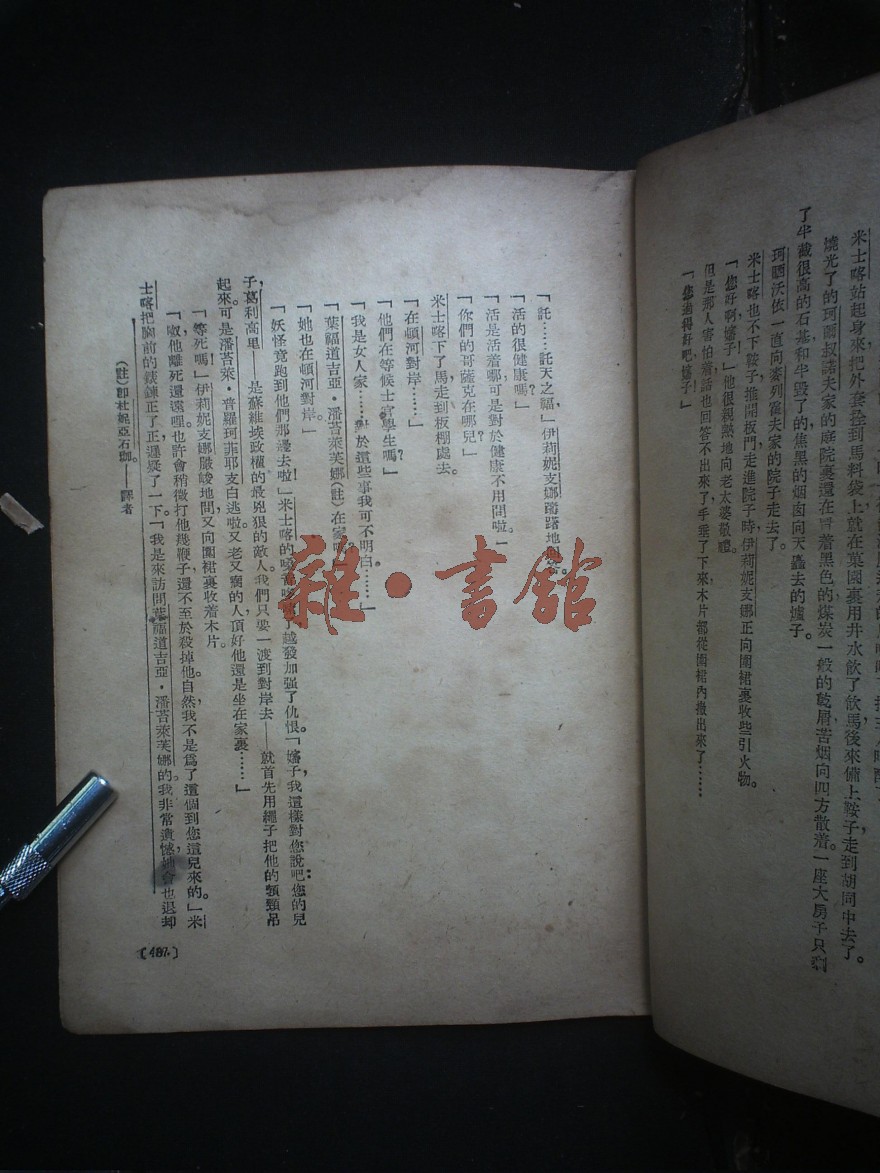 米士喀站起身來把外套拴到馬料袋上就在菓園裏用井水飲了飲馬後來備上鞍子走到胡同中去了。
燒光了的珂爾叔諾夫家的庭院裏還在冒着黑色的煤炭一般的乾屑苦烟向四方散着。一座大房子只剩
了半截很高的石基和半毀了的，焦黑的烟囱向天矗去的爐子。
珂晒沃依一直向麥列霍夫家的院子走去了。
米士喀也不下鞍子推開板門走進院子時伊莉妮支娜正向圍裙裏收些引火物。
「您好啊嬸子！」他很親熱地向老太婆敬禮。
但是那人害怕着話也回答不出來了，手垂了下來木片都從圍裙內撒出來了……
「您過得好吧嬸子！」
「託……託天之福，」伊莉妮支娜躊躇地
「活的很健康嗎？」
「活是活着哪可是對於健康不用問啦。」
「你們的哥薩克在哪兒？」
米士喀下了馬走到板棚處去。
「在頓河對岸……」
「他們在等候士官學生嗎？」
「我是女人家……對於這些事我可不明白……」
「葉福道吉亞・潘苔萊芙娜（註）在家
「她也在頓河對岸。」
「妖怪竟跑到他們那邊去啦！」米士喀的 了，越發加強了仇恨。「嬸子，我這樣對您說吧：您的兒
子葛利高里——是蘇維埃政權的最兇狠的敵人。我們只要一渡到對岸去——就首先用繩子把他的頸頸吊
起來。可是潘苔萊・普羅珂菲耶支白逃啦。又老又瘸的人，頂好他還是坐在家裏……」
「等死嗎？」伊莉妮支娜嚴峻地間，又向圍裙裏收着木片。
「呶，他離死還遠哩。也許會稍微打他幾鞭子，還不至於殺掉他。自然，我不是爲了這個到您這兒來的。」米
士喀把胸前的錶鍊正了正，遲疑了一下。「我是來訪問葉福道吉亞・潘苔萊芙娜的。我非常遺憾，她會也退却
（註）卽杜妮亞石珈。——譯者
〔487〕
雜・書館